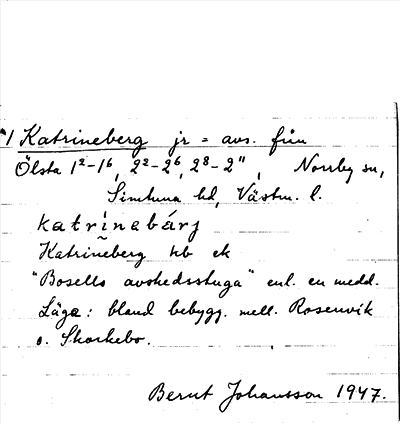 */ Katrineberg jr = avs. från
Ölsta 1²–1⁶, 2²–2⁶, 2⁸–2¹¹, Norrby sn,
Simtuna hd, Västm. l.
katrinabárj
Katrineberg hb ek
"Bosells avskedsstuga" enl. en medd.
Läge: bland bebygg. mell. Rosenvik
o. Skorkebo.
Bernt Johansson 1947.